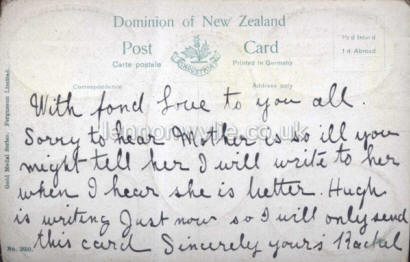 Dominion of New Zealand
Post Card
Carte postale
Printed in Germany
½d Inland
1d Abroad
Correspondence
Address only
With fond love to you all.
Sorry to hear Mother is so ill you
might tell her I will write to her
when I hear she is better. Hugh
is writing Just now so I will only send
this card Sincerely yours Rachel
Gold Medal Series. Fergusson Limited.